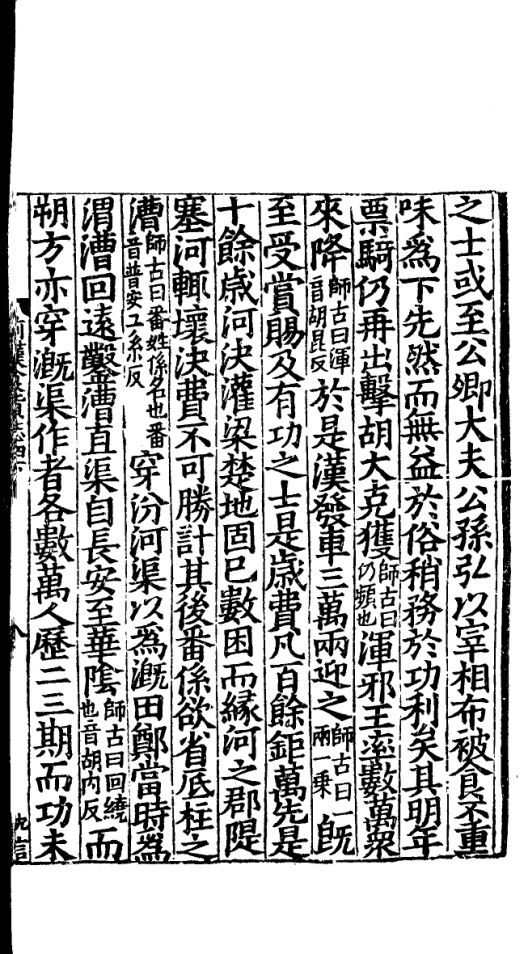 之士或至公卿大夫公孫弘以宰相布被食不重
味爲下先然而無益於俗稍務於功利矣其明年
票騎仍再出擊胡大克獲師古曰仍頻也渾邪王率數萬衆
來降師古曰渾音胡昆反於是漢發車三萬兩迎之師古曰兩一乘旣
至受賞賜及有功之士是歲費凡百餘鉅萬先是
十餘歲河決灌梁楚地固已數困而緣河之郡隄
塞河輒壞決費不可勝計其後番係欲省底柱之
漕師古曰番姓係名也番音普安工系反穿汾河渠以爲漑田鄭當時爲
渭漕回遠鑿漕直渠自長安至華陰師古曰回繞也音胡內反而
朔方亦穿漑渠作者各數萬人歷二三期而功未